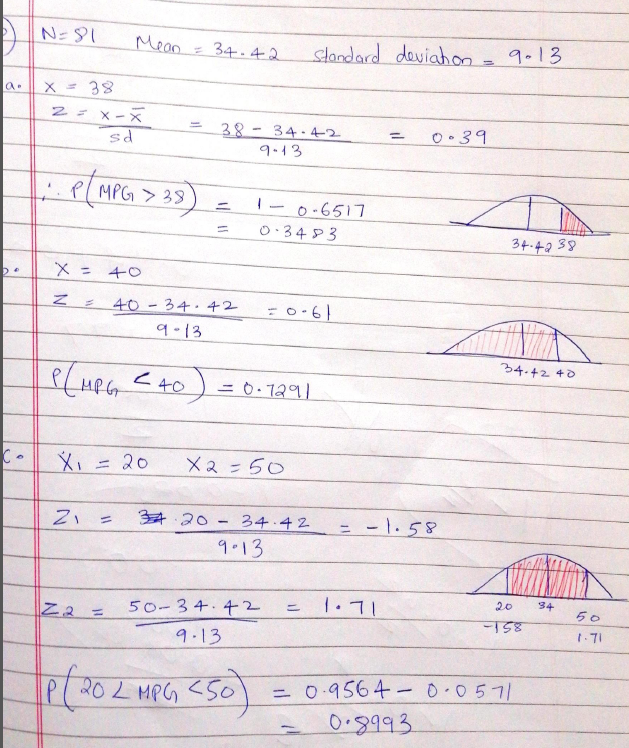 N=81 Mean = 34.42 standard deviation = 9.13
a. X = 38
Z = X-X̄ / sd = 38 - 34.42 / 9.13 = 0.39
∴ P(MPG > 38) = 1 - 0.6517
= 0.3483
34.42 38
b. X = 40
Z = 40-34.42 / 9.13 = 0.61
34.42 40
P(MPG < 40) = 0.7291
c. X1 = 20 X2 = 50
Z1 = 20 - 34.42 / 9.13 = -1.58
Z2 = 50-34.42 / 9.13 = 1.71
20 34 50
-158 1.71
P(20 < MPG < 50) = 0.9564 - 0.0571
= 0.8993